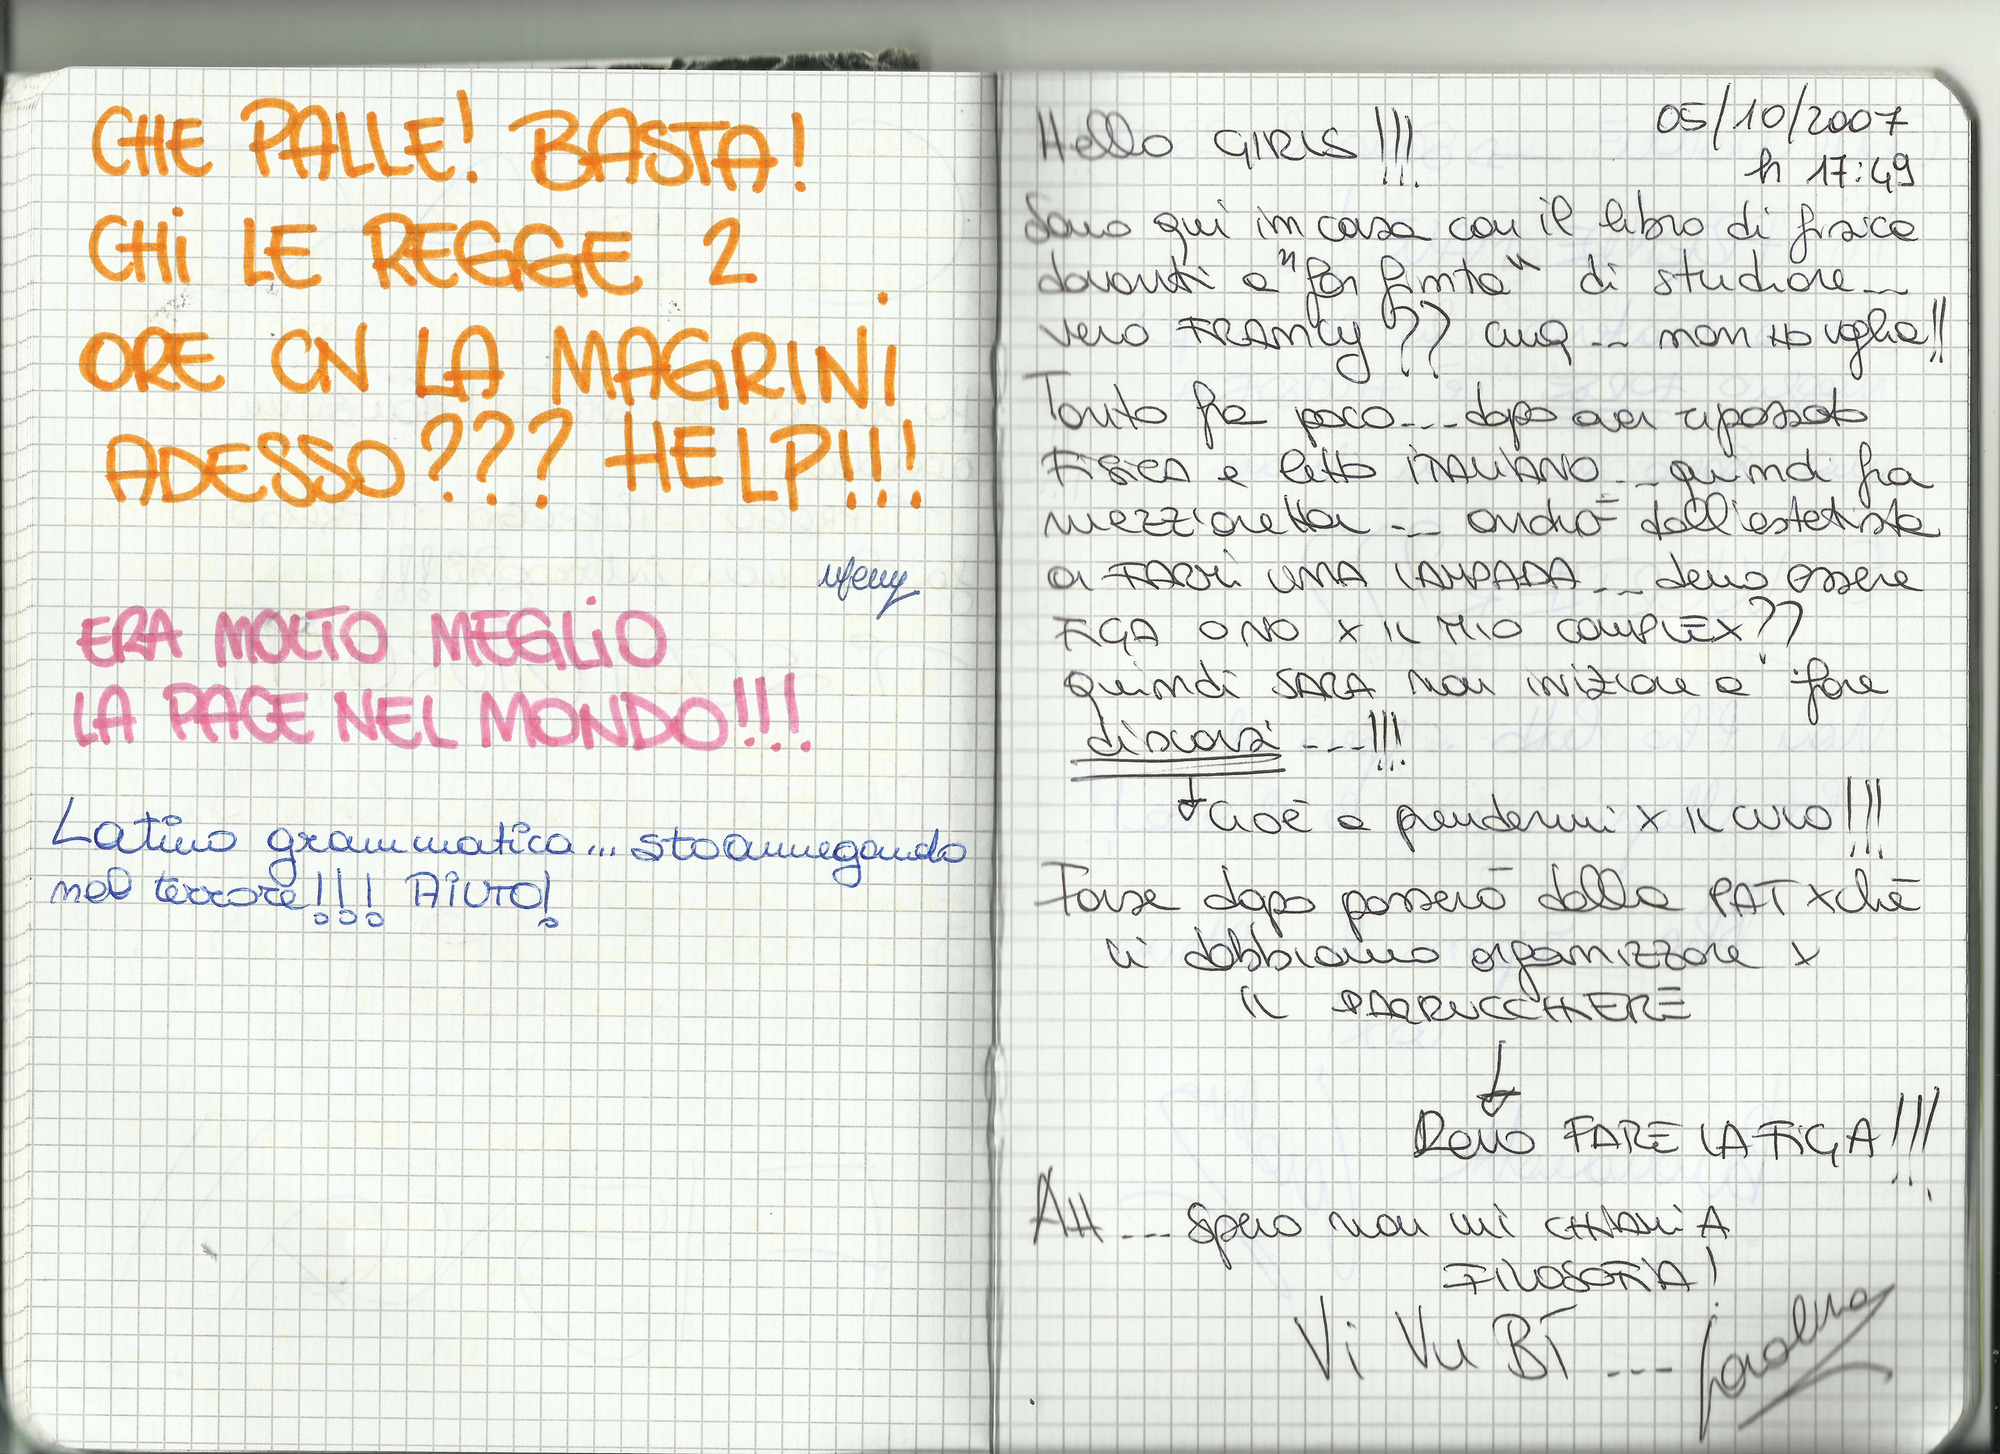 CHE PALLE! BASTA!
CHi LE REGGE 2
ORE CN LA MAGRiNi
ADESSO??? HELP!!!
ERA MOLTO MEGLiO
LA PACE NEL MONDO!!!
Latino grammatica... sto annegando
nel terrore!!! AiUTO!
05/10/2007
h 17:49
Hello GIRLS!!!
Sono qui in casa con il libro di fisica
davanti a "far finta" di studiare...
vero FRANCY?? cmq... non ho voglia!!
Tanto fra poco... dopo aver ripassato
FISICA e letto ITALIANO... quindi fra
mezzioretta... andrò dall'estetista
a FARMi UNA LAMPADA... devo essere
FIGA O NO X IL MIO COMPLEX??
quindi SARA non iniziare a fare
discorsi ...!!!
Cioè a prendermi x IL CULO!!!
Forse dopo passerò dalla PAT xchè
ci dobbiamo organizzare x
IL PARRUCCHIERE
Devo FARE LA FiGA!!!
AH... spero non mi CHIAMi A
FILOSOFIA!
Vi Vu Bì ...